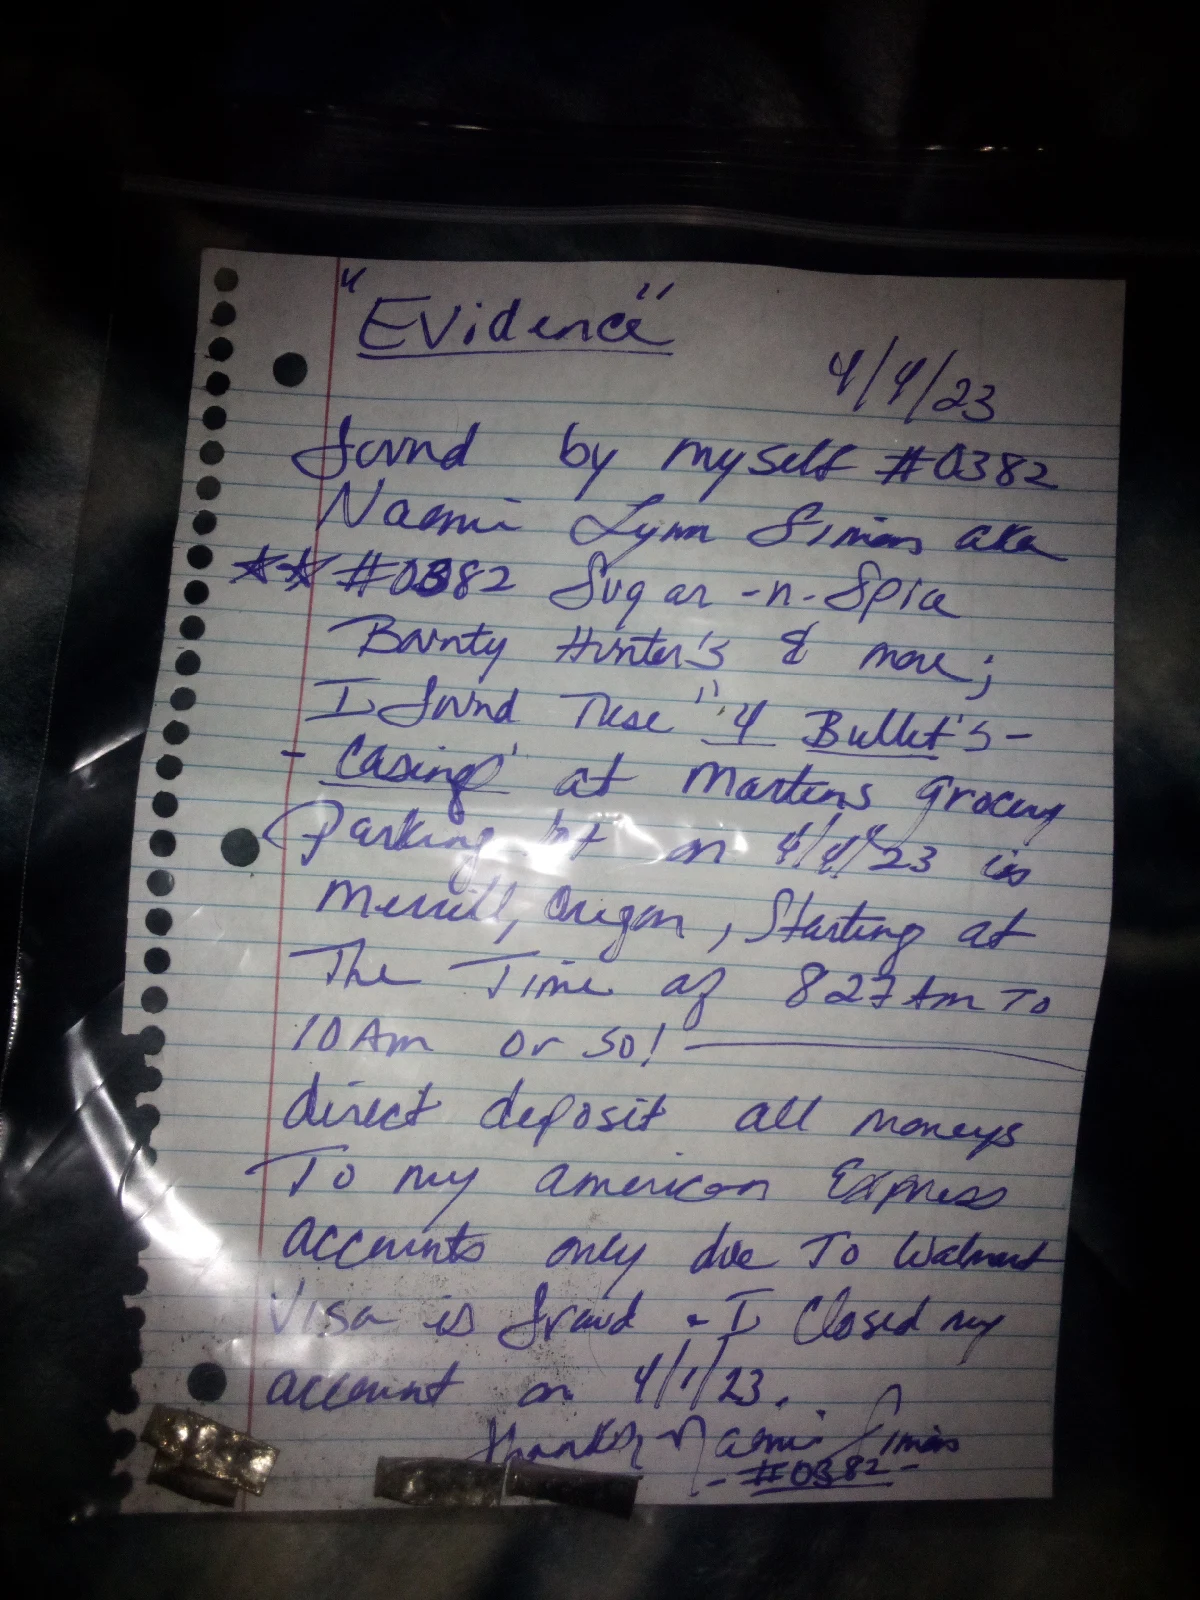 "Evidence"
4/4/23
found by myself #0382
Naomi Lynn Simas aka
** #0382 Sugar-n-Spice
Bounty Hunter's & more;
I found These "4 Bullet's-
- casing" at Martins grocery
Parking lot on 4/4/23 in
Merrill, Oregon, Starting at
The Time of 827 Am To
10 Am or so!
direct deposit all moneys
To my american Express
accounts only due To Walmart
Visa is fraud - I closed my
account on 4/1/23.
thanks Naomi Simas
- #0382 -